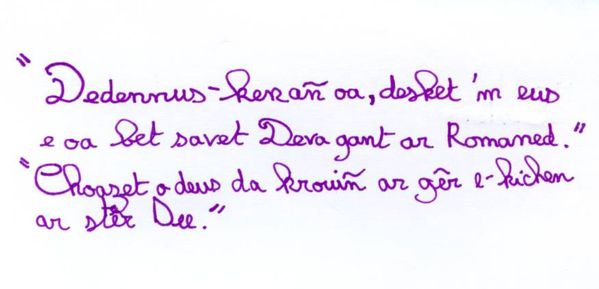 "Dedennus-kenañ oa, desket 'm eus
e oa bet savet Deva gant ar Romaned."
"Choazet o deus da krouiñ ar gêr e-kichen
ar stêr Dee."